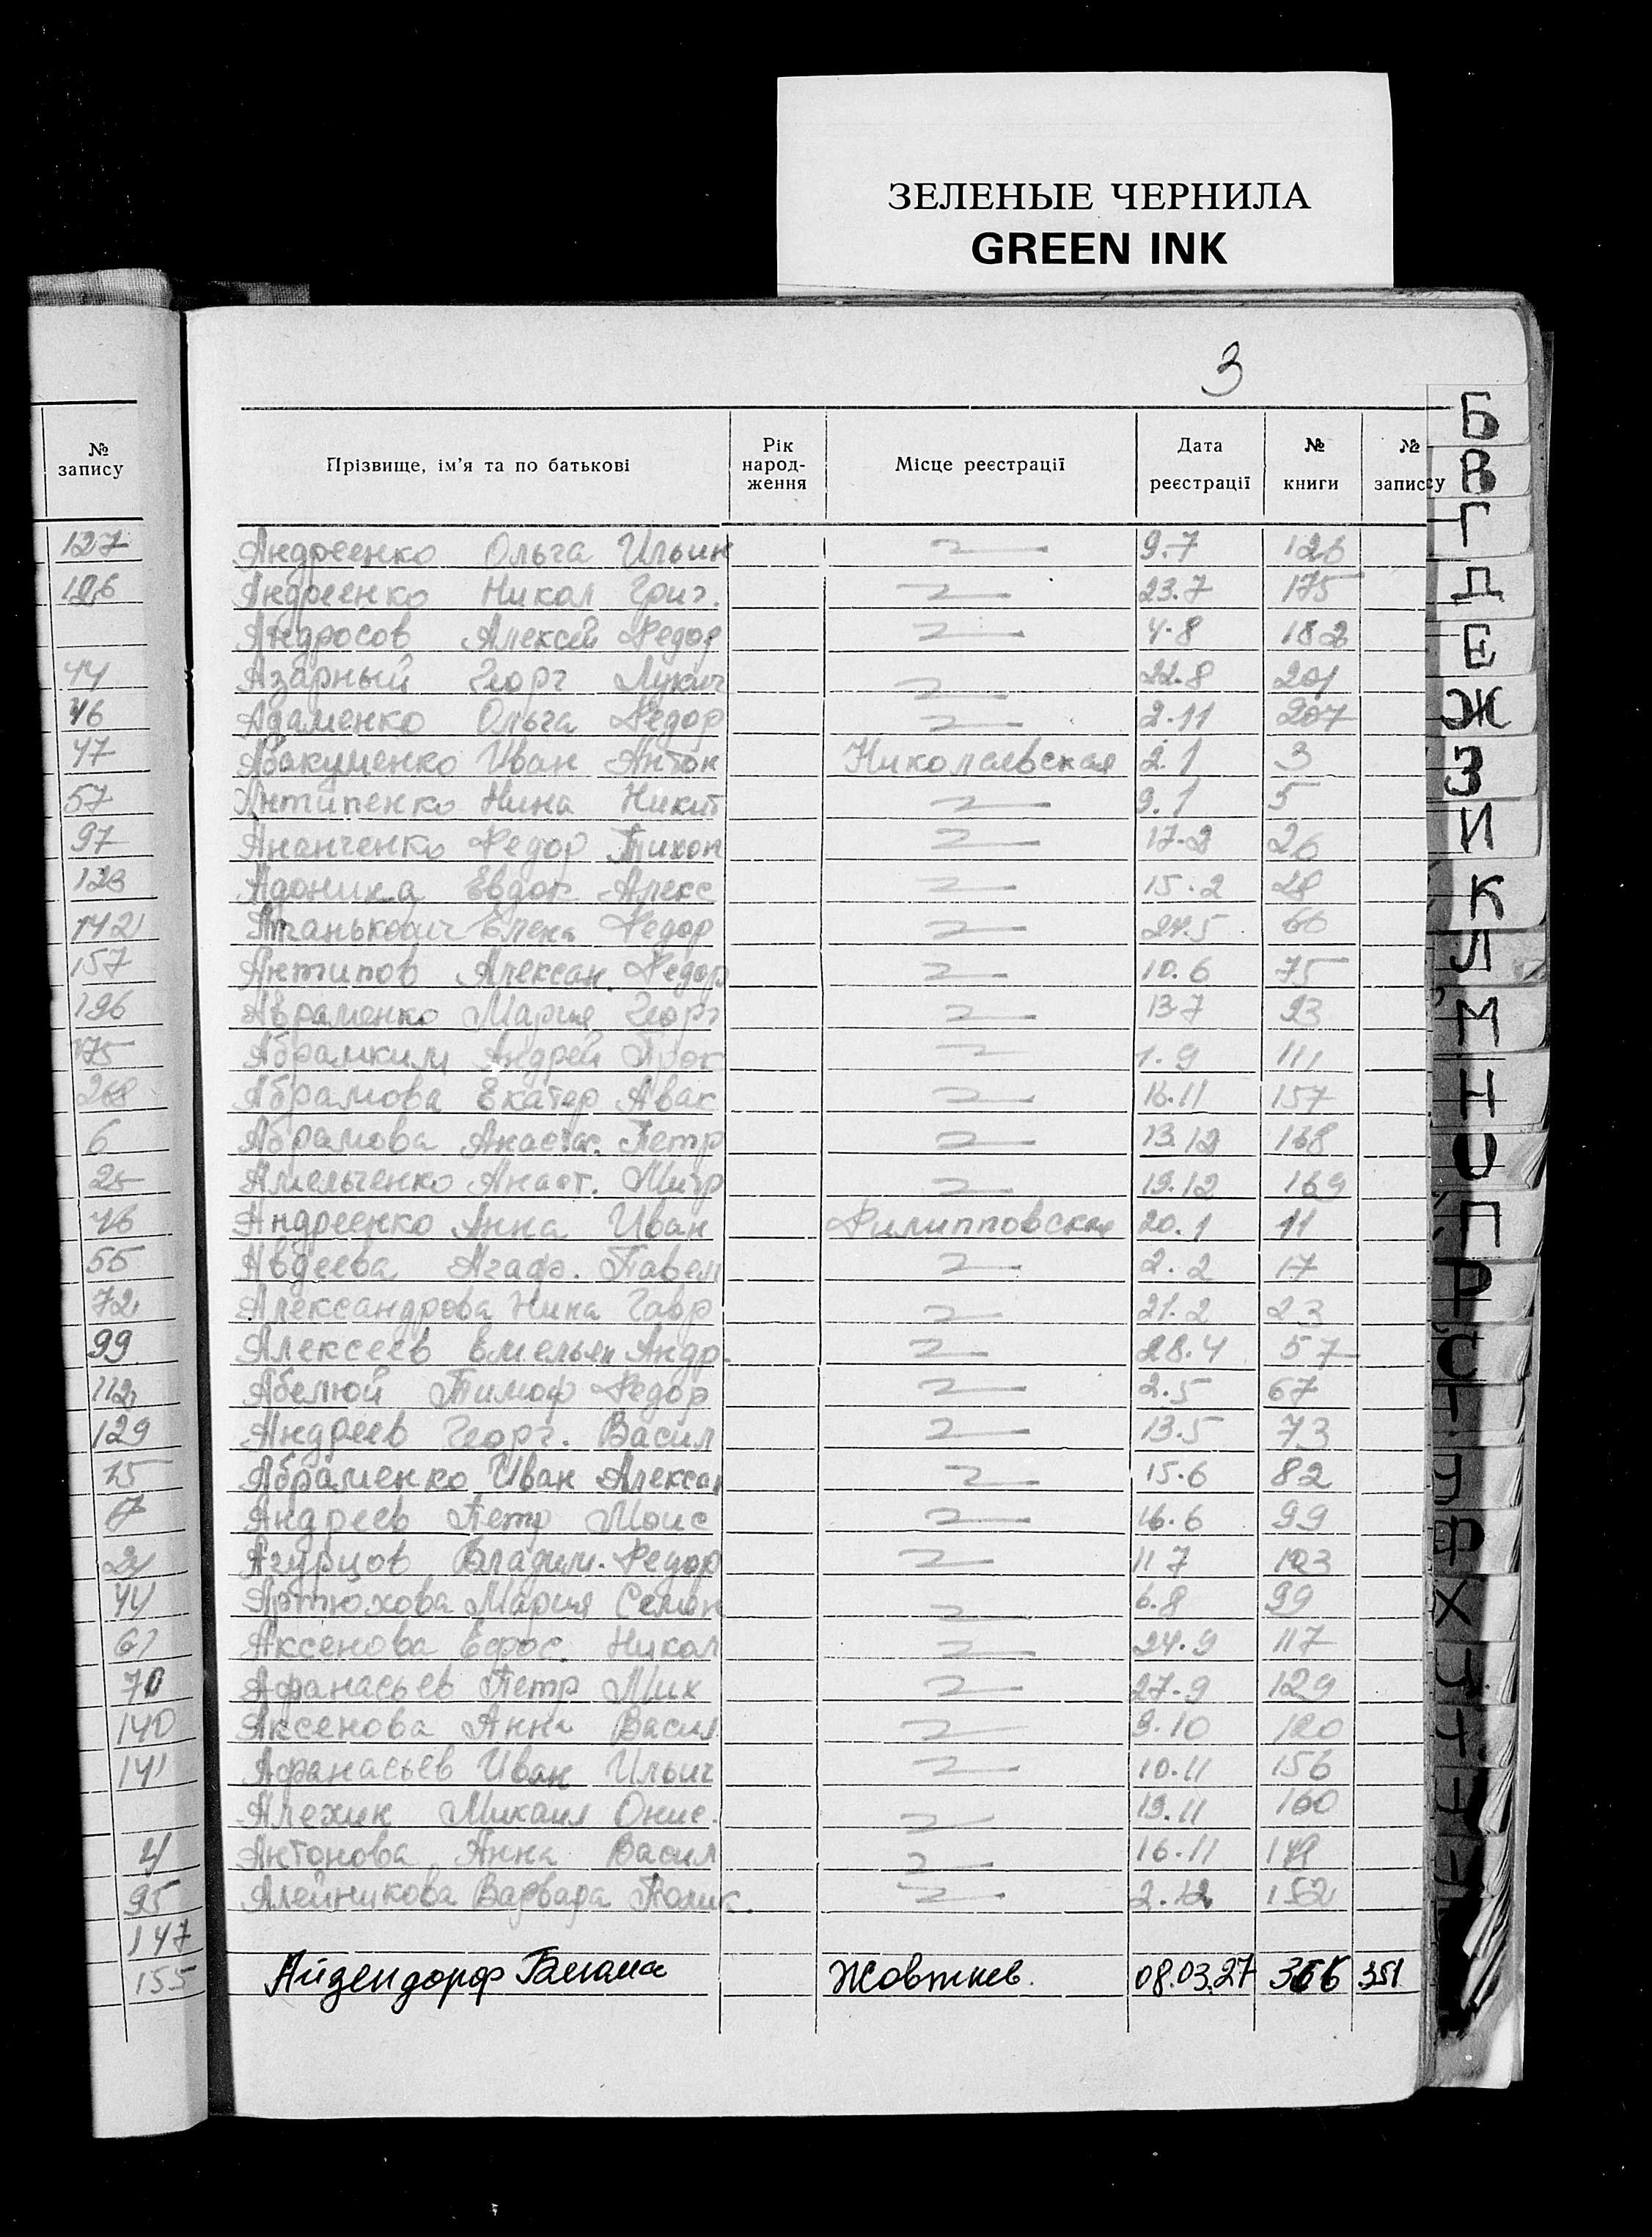 ЗЕЛЕНЫЕ ЧЕРНИЛА
GREEN INK
3
№ запису
Прізвище, ім'я та по батькові Рік народ-ження Місце реєстрації Дата реєстрації № книги № запису
127 Андреенко Ольга Ильин 9.7 126
196 Андреенко Никол Григ. 23.7 175
Андросов Алексей Федор 4.8 182
44 Азарный Георг Лукич 22.8 201
46 Адаменко Ольга Федор 2.11 207
47 Абакуменко Иван Антон Николаевская 2.1 3
57 Антипенко Нина Никит 9.1 5
97 Ананченко Федор Тихон 17.2 26
128 Адоника Евдок Алекс 15.2 28
142 Елена Федор 60
157 Антипов Алексан. Федор 10.6 75
196 Авраменко Мария Георг 13.7 93
175 Абрамкин Андрей Прок 1.9 111
Абрамова Екатер Авак 16.11 157
6 Абрамова Анастас. Петр 13.12 168
25 Амельченко Анаст. Митр 19.12 169
46 Андреенко Анна Иван Филипповская 20.1 11
55 Авдеева Агаф. Павел 2.2 17
72 Александрова Нина Гавр 21.2 23
99 Алексеев Емельян Андр. 28.4 57
112 Тимоф Федор 2.5 67
129 Андреев Георг. Васил 13.5 73
15 Абраменко Иван Алексан 15.6 82
Андреев Петр Моис 16.6 99
21 Агурцов Владим. Федор 11 7 103
44 Артюхова Мария Семен 6.8 99
61 Аксенова Ефрос. Никол 24.9 117
70 Афанасьев Петр Мих 27.9 129
140 Аксенова Анна Васил 9.10 120
141 Афанасьев Иван Ильич 10.11 156
Алехин Михаил Онис. 19.11 160
4 Антонова Анна Васил 16.11
95 Алейникова Варвара 2.12 152
147
155 Айзендорф Жовтнев. 08.03.27 366 351
Б
В
Г
Д
Е
Ж
З
И
К
Л
М
Н
О
П
Р
С
Т
У
Ф
Х
Ц